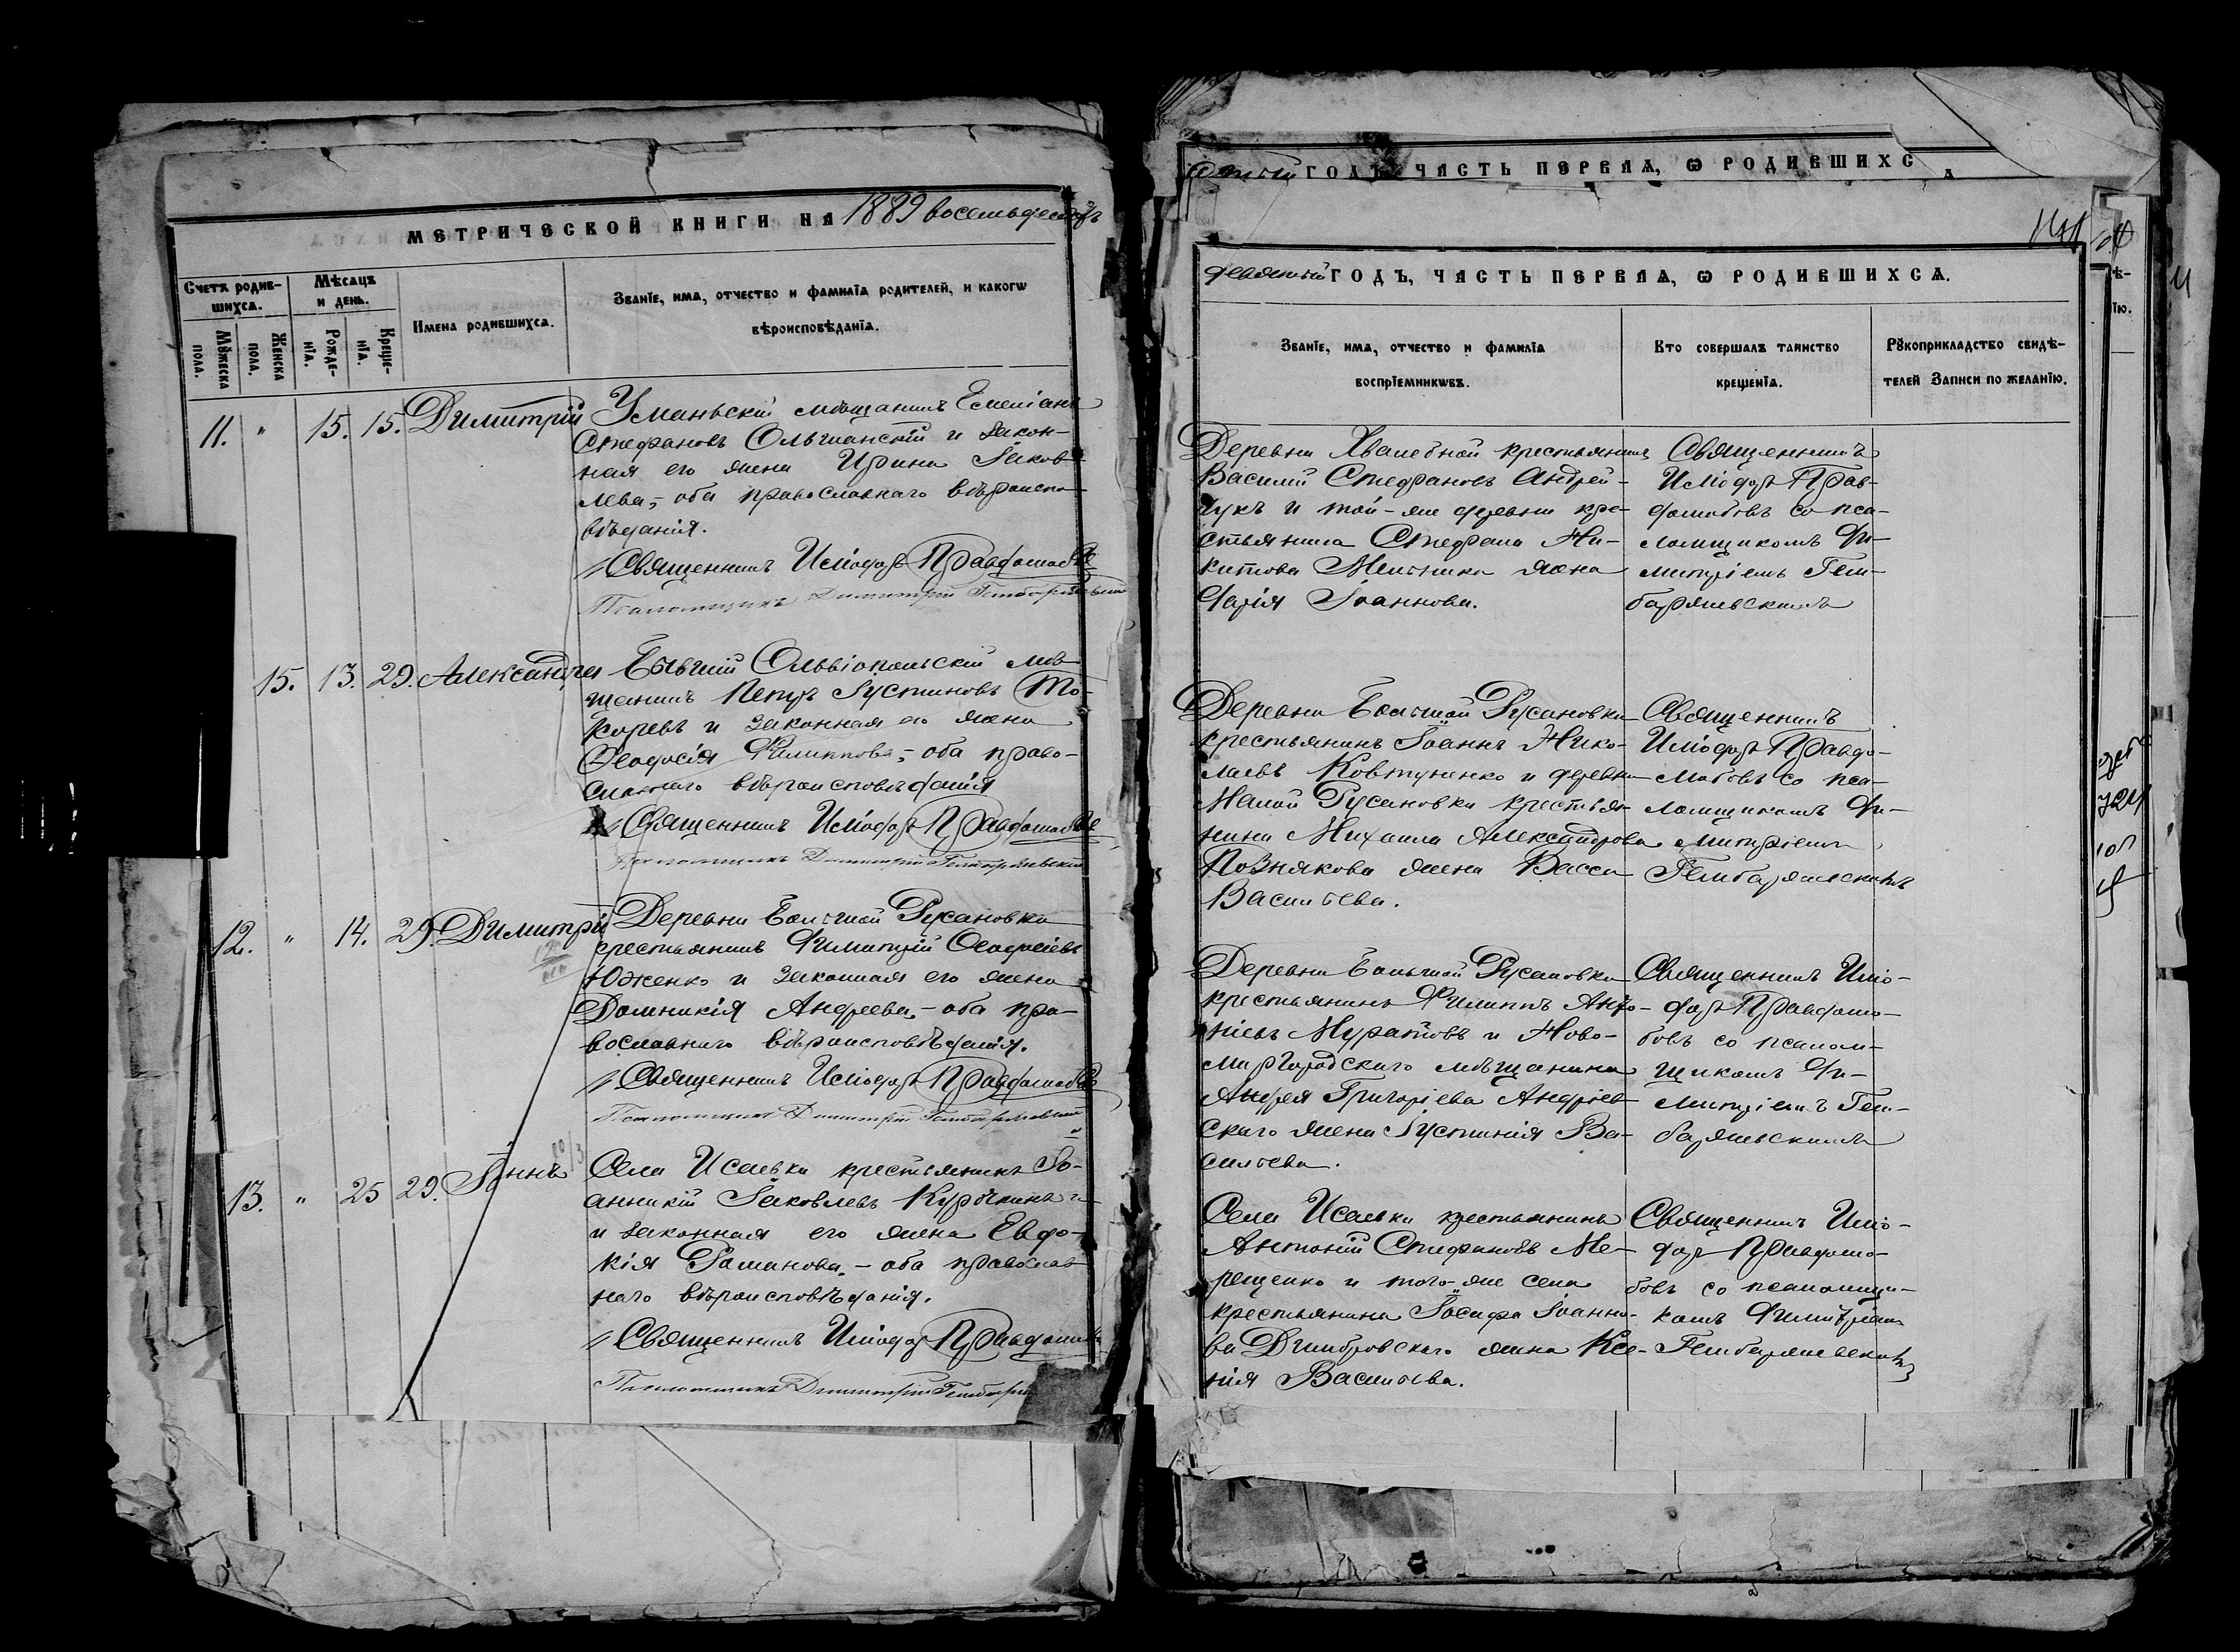 МЕТРИЧЕСКОЙ КНИГИ НА 1889 восемьдесятъ
Счетъ родившихся.
Мѣсяцъ и день.
Имена родившихся.
Званіе, имя, отчество и фамилія родителей, и какогѡ
вѣроисповѣданія.
Мꙋжеска пола.
Женска пола.
Рожденія.
Крещенія.
11. " 15. 15. Димитрій
Уманьскій мѣщанинъ Емеліанъ
Стефановъ Ольшанскій и закон-
ная его жена Ирина Іаков-
лева, - оба православнаго вѣроиспо-
вѣданія.
Священникъ Исидоръ Правдолюбовъ
Псаломщикъ Димитрій Гембаржевскій
15. 13. 29. Александра
Бывшій Ольвіопольскій мѣ-
щанинъ Петръ Іустиновъ То-
каревъ и законная его жена
Ѳеодосія Филиппова, - оба право-
славнаго вѣроисповѣданія
Священникъ Исидоръ Правдолюбовъ
Псаломщикъ Димитрій Гембаржевскій
12. " 14. 29. Димитрій
Деревни Большой Русановки
крестьянинъ Димитрій Ѳеодосіевъ
Юженко и законная его жена
Домникія Андреева, - оба пра-
вославнаго вѣроисповѣданія.
Священникъ Исидоръ Правдолюбовъ
Псаломщикъ Димитрій Гембаржевскій
13. " 25 29. Іоаннъ
Села Исаевки крестьянинъ Іо-
анникій Іаковлевъ Курочкинъ и
и законная его жена Евдо-
кія Романова, - оба православ-
наго вѣроисповѣданія.
Священникъ Исидоръ Правдолюбовъ
Псаломщикъ Димитрій Гембарж
ГОДЪ, ЧАСТЬ ПЕРВАЯ, Ѡ РОДИВШИХСѦ
девятый ГОДЪ, ЧАСТЬ ПЕРВАЯ, Ѡ РОДИВШИХСѦ.
Званіе, имя, отчество и фамилія
воспріемникѡвъ.
Кто совершалъ таинство
крещенія.
Рꙋкоприкладство свидѣ-
телей записи по желанію.
Деревни Хвалебной крестьянинъ
Василій Стефановъ Андрей-
чукъ и той-же деревни кре-
стьянина Стефана Ни-
китова Мельника жена
Дарія Іоаннова.
Священникъ
Исидоръ Прав-
долюбовъ со пса-
ломщикомъ Ди-
митріемъ Гем-
баржевскимъ
Деревни Большой Русановки
крестьянинъ Іоаннъ Нико-
лаевъ Ковтуненко и деревни
Малой Русановки крестья-
нина Михаила Александрова
Познякова жена Васса
Васильева.
Священникъ
Исидоръ Правдо-
любовъ со пса-
ломщикомъ Ди-
митріемъ
Гембаржевскимъ
Деревни Большой Русановки
крестьянинъ Филиппъ Анто-
ніевъ Муратовъ и Ново-
миргородскаго мѣщанина
Андрея Григоріева Андріев-
скаго жена Іустинія Ва-
сильева.
Священникъ Иси-
доръ Правдолю-
бовъ со псалом-
щикомъ Ди-
митріемъ Гем-
баржевскимъ
Села Исаевки крестьянинъ
Антоній Стефановъ Ме-
рещенко и того-же села
крестьянина Іосифа Іоанно-
ва Домбровскаго жена Ксе-
нія Васильева.
Священникъ Иси-
доръ Правдолю-
бовъ со псаломщи-
комъ Димитріемъ
Гембаржевскимъ